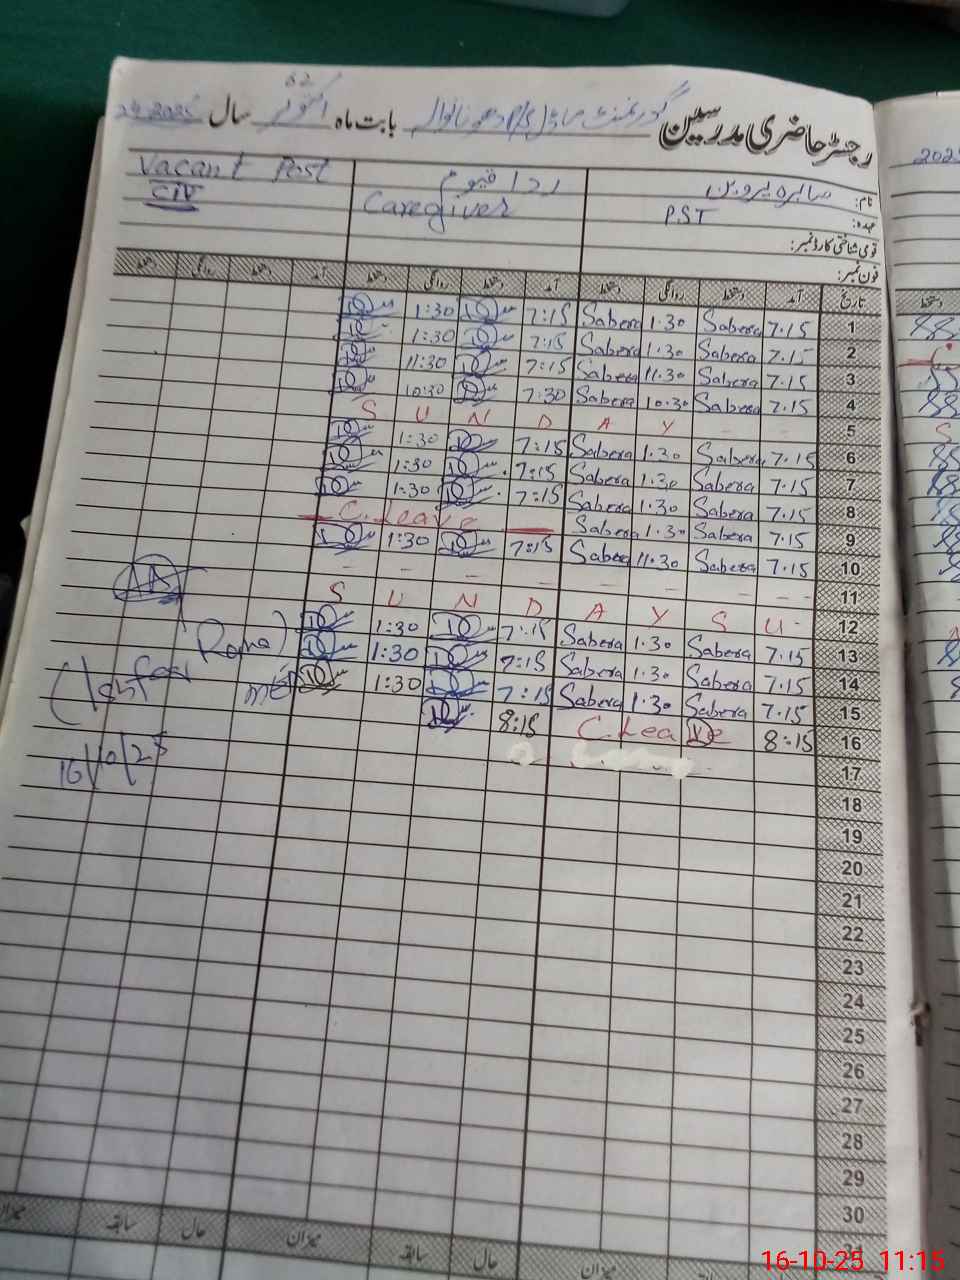 رجسٹر حاضری مدرسین گورنمنٹ ماڈل بابت ماہ اکتوبر سال
نام: صابرہ پروین ردا قیوم Vacant Post
عہدہ: PST Caregiver CIV
قومی شناختی کارڈ نمبر:
فون نمبر:
تاریخ آمد دستخط روانگی دستخط آمد دستخط روانگی دستخط آمد دستخط روانگی دستخط
1 7.15 Sabera 1.30 Sabera 7:15 1:30
2 7.15 Sabera 1.30 Sabera 7:15 1:30
3 7.15 Sabera 11.30 Sabera 7:15 11:30
4 7.15 Sabera 10.30 Sabera 7:30 10:30
5 S U N D A Y
6 7.15 Sabera 1.30 Sabera 7:15 1:30
7 7.15 Sabera 1.30 Sabera 7:15 1:30
8 7.15 Sabera 1.30 Sabera 7:15 1:30
9 7.15 Sabera 1.30 Sabera C.Leave
10 7.15 Sabera 11.30 Sabera 7:15 1:30
11
12 S U N D A Y S U
13 7.15 Sabera 1.30 Sabera 7:15 1:30
14 7.15 Sabera 1.30 Sabera 7:15 1:30
15 7.15 Sabera 1.30 Sabera 7:15 1:30
16 8:15 C.Leave 8:15
17
18
19
20
21
22
23
24
25
26
27
28
29
30
31
Rana)
16/10/25
میزان حال سابقہ میزان حال سابقہ میزان
2025
16-10-25 11:15